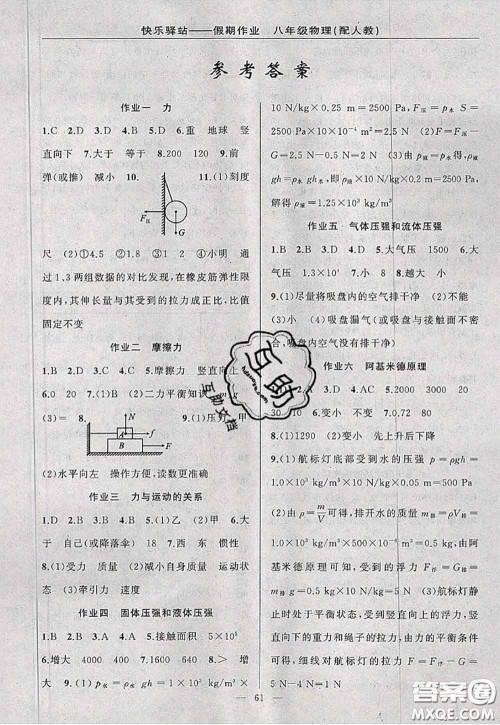 快乐驿站——假期作业 八年级物理(配人教)
参考答案
作业一 力
1.C 2.D 3.D 4.D 5.D 6.重 地球 竖
直向下 7.大于 等于 8.200 120 9.前
弹(或推) 减小 10.
11.(1)刻度
F压
G
尺 (2)①4.5 ②1.8 2 4 ③小明 通
过 1、3 两组数据的对比发现,在橡皮筋弹性限
度内,其伸长量与其受到的拉力成正比,比值
固定不变
作业二 摩擦力
1.C 2.D 3.B 4.D 5.摩擦力 竖直向上
6.0 20 8.(1)②二力平衡知识
(3)
N
A
f
B
F
9.(1)压力
(2)水平向左 操作方便,读数更准确
作业三 力与运动的关系
1.D 2.A 3.B 4.B 5.(1)乙 (2)甲 6.大
于 自己(或降落伞) 18 7.西 东 惯性
8.(1)受力 质量 (2)减小自身质量 增大受
力 (3)牵引力 速度
作业四 固体压强和液体压强
1.B 2.D 3.C 4.A 5.接触面积 5×10³
6.增大 4000 400 7.1500 0 8.变大
增大 9.(1)p水=ρ水gh=1.0×10³ kg/m³×
10 N/kg×0.25 m=2500 Pa, F压=p水 S=
2500 Pa×10×10⁻⁴ m²=2.5 N (2)F=F压-
G=2.5 N-0.5 N=2 N (3)由p液=p水可
得:ρ液gh₁=ρ水gh+
2500 Pa,
解得ρ液=1.25×10³ kg/m³
作业五 气体压强和流体压强
1.B 2.B 3.A 4.D 5.大气压 1500 6.大
气压 1.3×10⁴ 7.小 小 8.越大 小
9.(1)尽量将吸盘内的空气排干净 (2)不能
(3)偏小 (4)吸盘漏气(或吸盘与接触面不密
合,吸盘内空气没有排干净)
作业六 阿基米德原理
1.B 2.D
5.
1×10³ 6.
7.0.72 80
8.(1)1290 (2)变小 先上升后下降
9.(1)航标灯底部受到水的压强:p=ρgh=
1.0×10³ kg/m³×10 N/kg×0.1 m=1000 Pa
(2)由ρ=m/V可得,排开水的质量m排=ρV排=
1.0×10³ kg/m³×6×10⁻³ m³=6 kg,由阿
基米德原理可知,航标灯的浮力:F浮=G排=
m排g=6 kg×10 N/kg=60 N (3)航标灯静
止时处于平衡状态,受到竖直向上的浮力和竖
直向下的重力和绳子的拉力,由力的平衡条件
可得,细线对航标灯的拉力:F=F浮-G=
5 N-4 N=1 N
61
互助
互助文档
答案圈
MXQE.COM